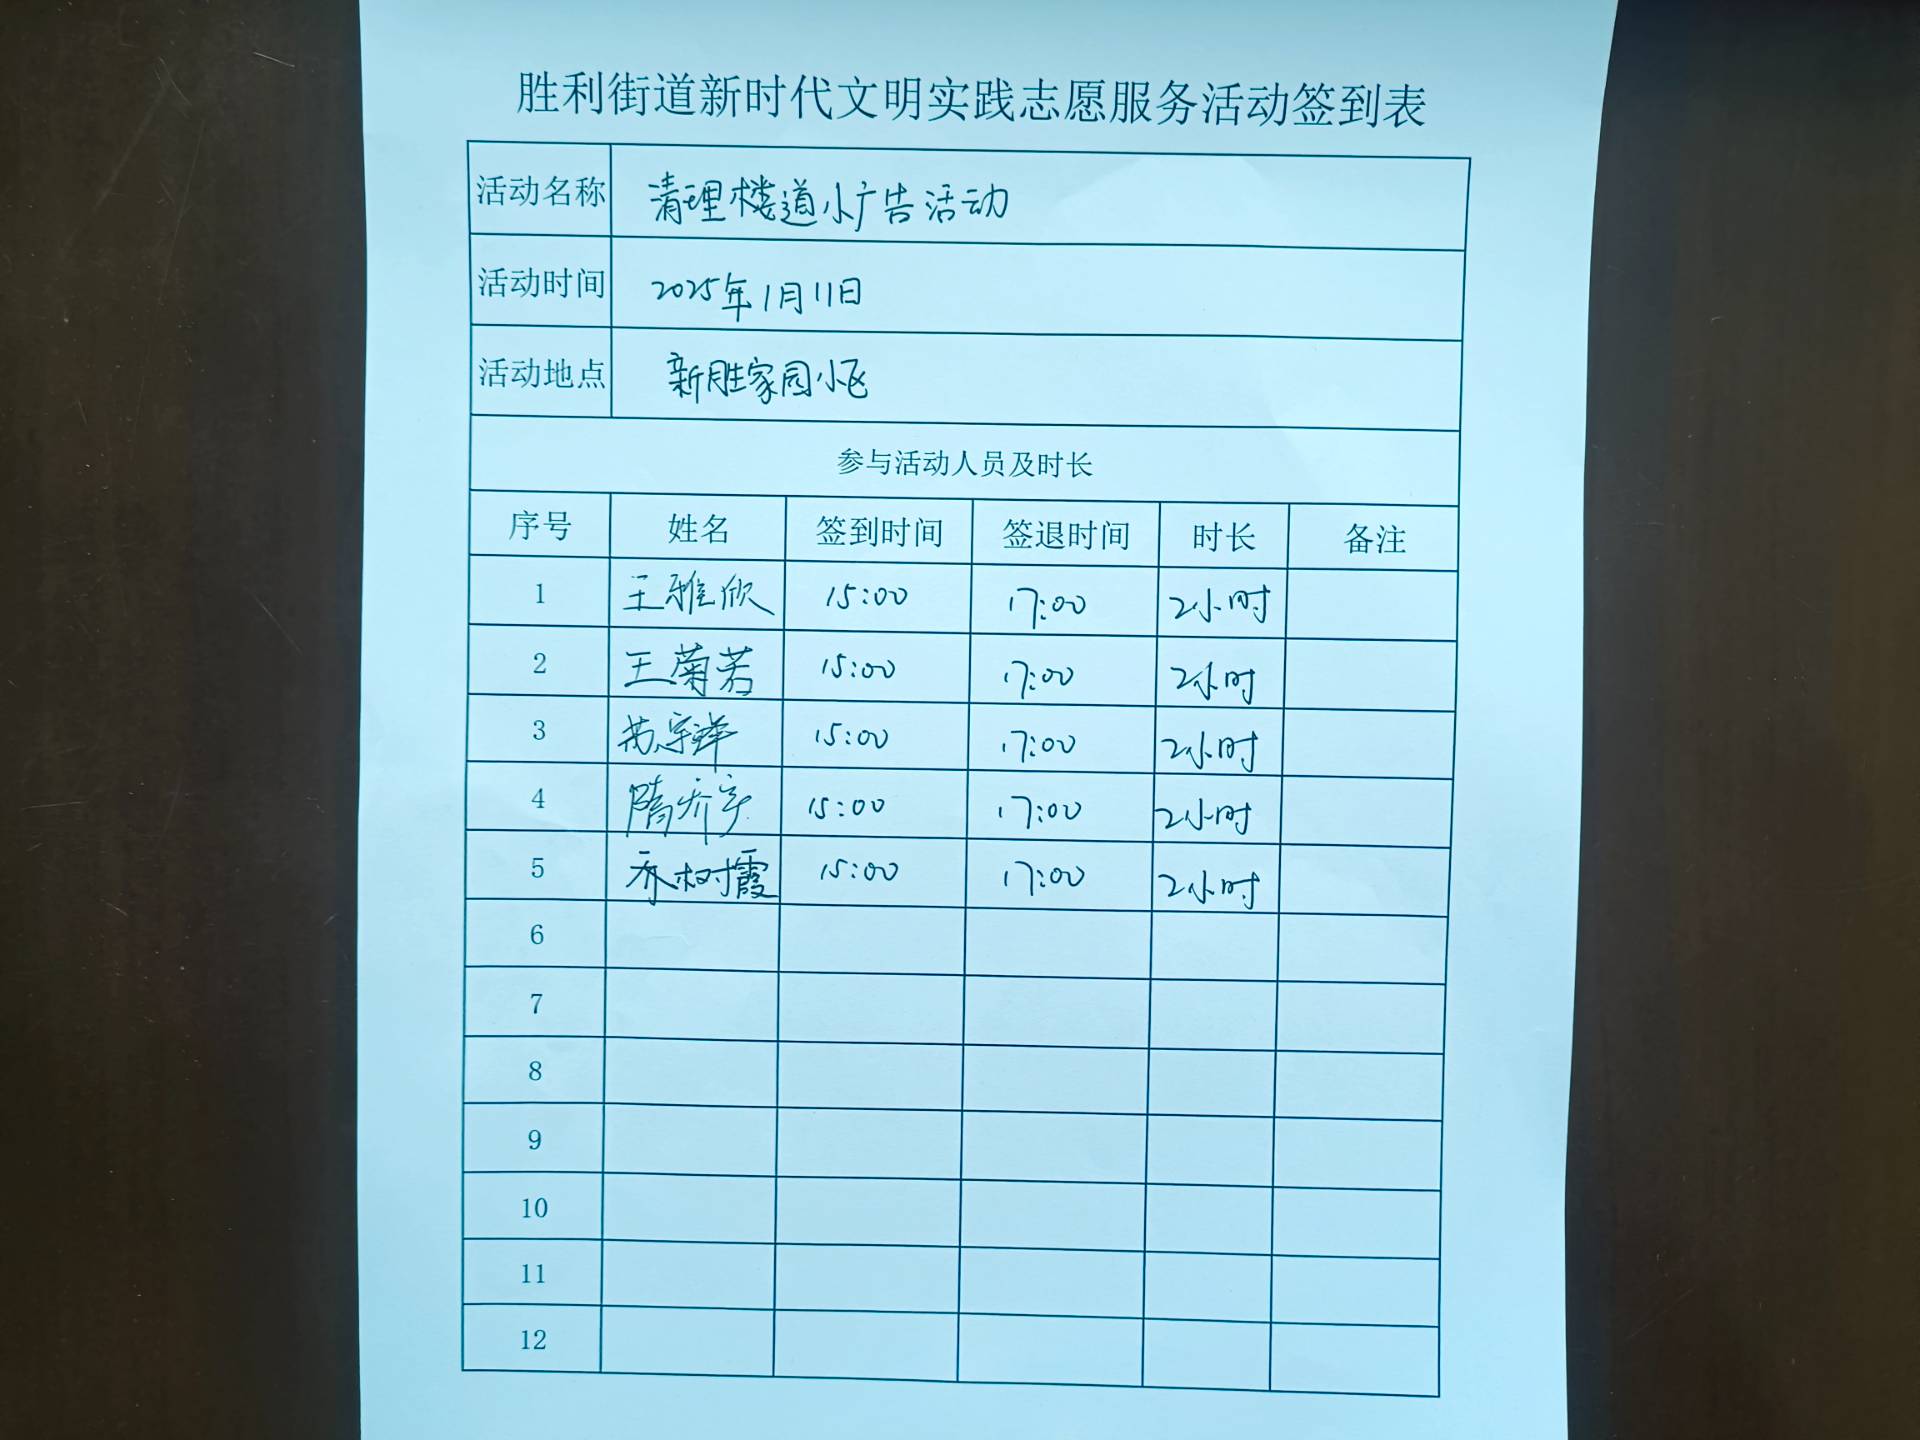 胜利街道新时代文明实践志愿服务活动签到表
活动名称 清理楼道小广告活动
活动时间 2025年1月11日
活动地点 新胜家园小区
参与活动人员及时长
序号 姓名 签到时间 签退时间 时长 备注
1 王雅欣 15:00 17:00 2小时
2 王菊若 15:00 17:00 2小时
3 苏宇洋 15:00 17:00 2小时
4 隋乔 15:00 17:00 2小时
5 乔树霞 15:00 17:00 2小时
6
7
8
9
10
11
12